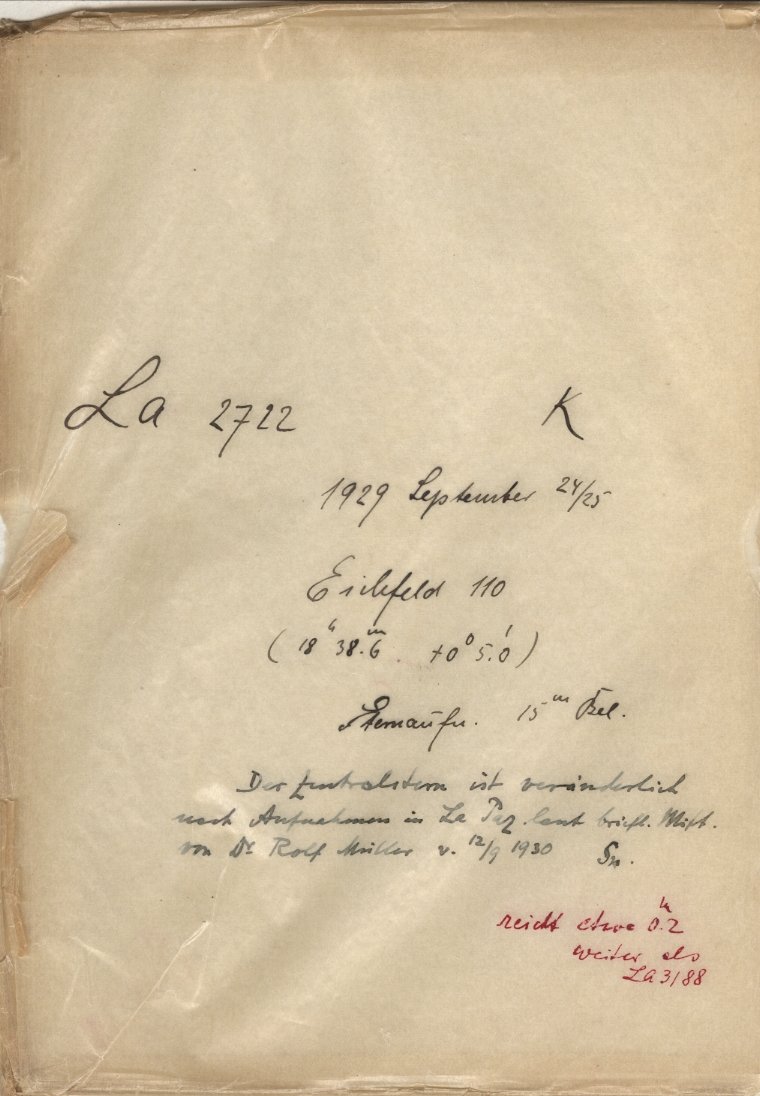 La 2722 K
1929 September 24/25
Eichfeld 110
(18ʰ 38.ᵐ6 +0⁰ 5.′0)
Sternaufn. 15ᵐ Bel.
Der Zentralstern ist veränderlich
nach Aufnahmen in La Paz laut briefl. Mitt.
von Dr Rolf Müller v. 12/9 1930 Sn.
reicht etwa 0.ᵐ2
weiter als
La 3188